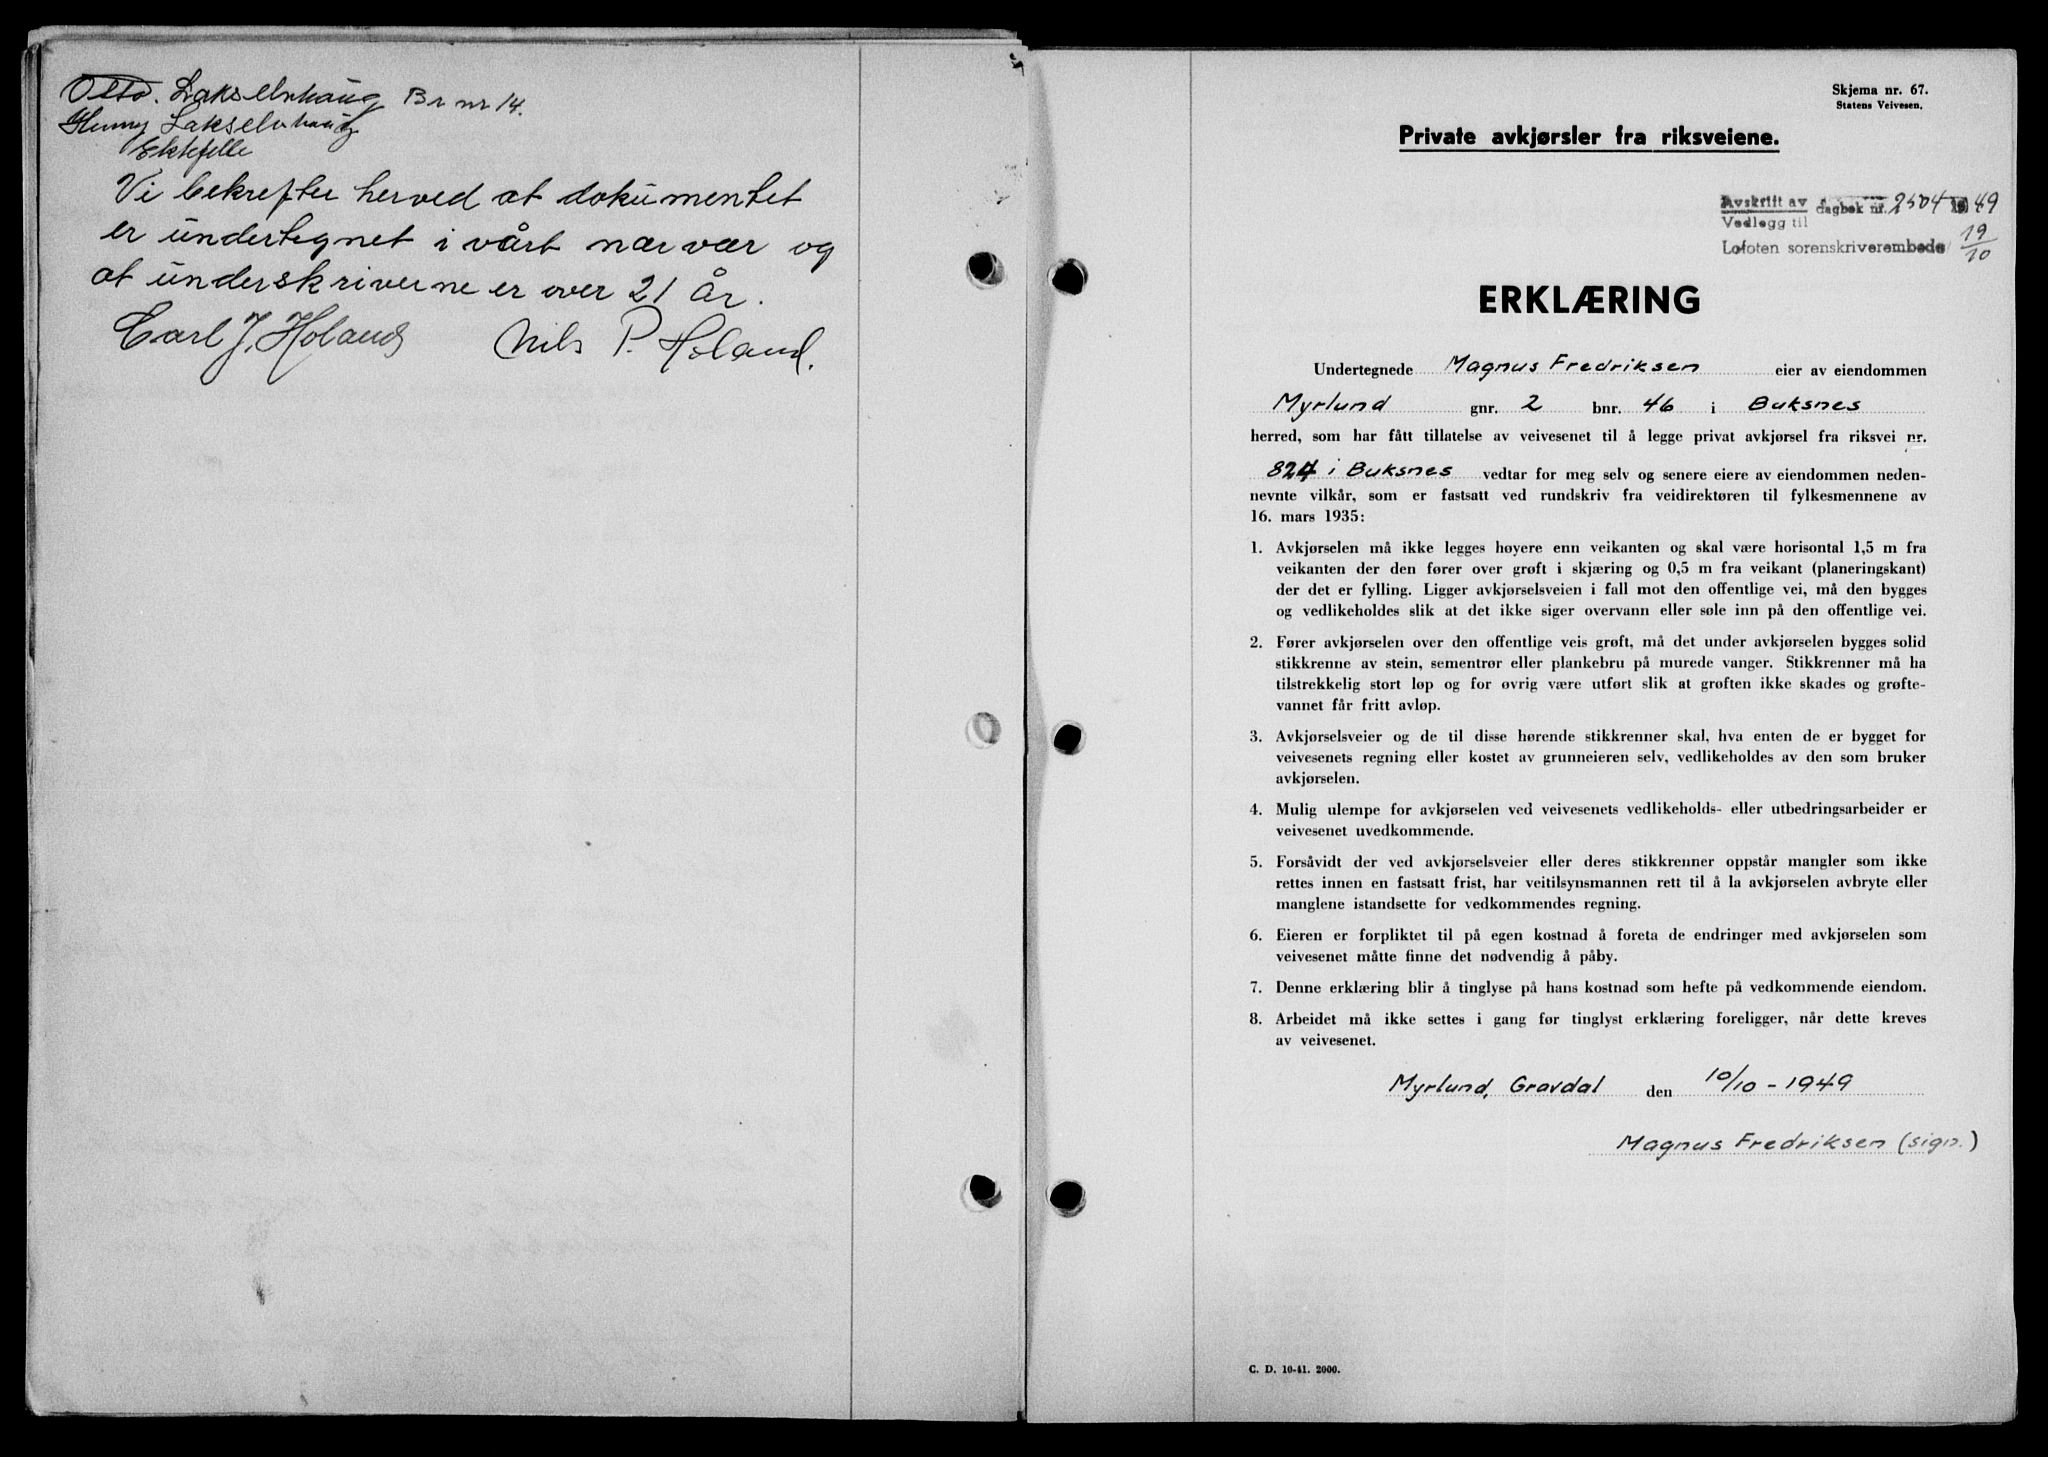 Otto. Lakselvhaug Br nr 14.
Henny Lakselvhaug
Ektefelle
Vi bekrefter herved at dokumentet
er undertegnet i vårt nærvær og
at underskriverne er over 21 år.
Carl J. Holand Nils P. Holand.
Skjema nr. 67.
Statens Veivesen.
Private avkjørsler fra riksveiene.
Avskrift av dagbok nr. 2504 1949
Vedlegg til
Lofoten sorenskriverembede 19/10
ERKLÆRING
Undertegnede Magnus Fredriksen eier av eiendommen
Myrlund gnr. 2 bnr. 46 i Buksnes
herred, som har fått tillatelse av veivesenet til å legge privat avkjørsel fra riksvei nr.
824 i Buksnes vedtar for meg selv og senere eiere av eiendommen neden-
nevnte vilkår, som er fastsatt ved rundskriv fra veidirektøren til fylkesmennene av
16. mars 1935:
1. Avkjørselen må ikke legges høyere enn veikanten og skal være horisontal 1,5 m fra
veikanten der den fører over grøft i skjæring og 0,5 m fra veikant (planeringskant)
der det er fylling. Ligger avkjørselsveien i fall mot den offentlige vei, må den bygges
og vedlikeholdes slik at det ikke siger overvann eller søle inn på den offentlige vei.
2. Fører avkjørselen over den offentlige veis grøft, må det under avkjørselen bygges solid
stikkrenne av stein, sementrør eller plankebru på murede vanger. Stikkrenner må ha
tilstrekkelig stort løp og for øvrig være utført slik at grøften ikke skades og grøfte-
vannet får fritt avløp.
3. Avkjørselsveier og de til disse hørende stikkrenner skal, hva enten de er bygget for
veivesenets regning eller kostet av grunneieren selv, vedlikeholdes av den som bruker
avkjørselen.
4. Mulig ulempe for avkjørselen ved veivesenets vedlikeholds- eller utbedringsarbeider er
veivesenet uvedkommende.
5. Forsåvidt der ved avkjørselsveier eller deres stikkrenner oppstår mangler som ikke
rettes innen en fastsatt frist, har veitilsynsmannen rett til å la avkjørselen avbryte eller
manglene istandsette for vedkommendes regning.
6. Eieren er forpliktet til på egen kostnad å foreta de endringer med avkjørselen som
veivesenet måtte finne det nødvendig å påby.
7. Denne erklæring blir å tinglyse på hans kostnad som hefte på vedkommende eiendom.
8. Arbeidet må ikke settes i gang før tinglyst erklæring foreligger, når dette kreves
av veivesenet.
Myrlund, Gravdal den 10/10 - 1949
Magnus Fredriksen (sign.)
C. D. 10-41. 2000.